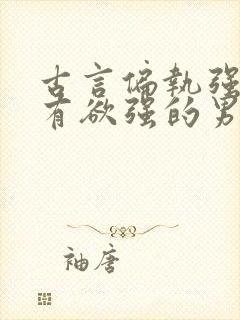 古言偏执强
有欲强的男
袖唐